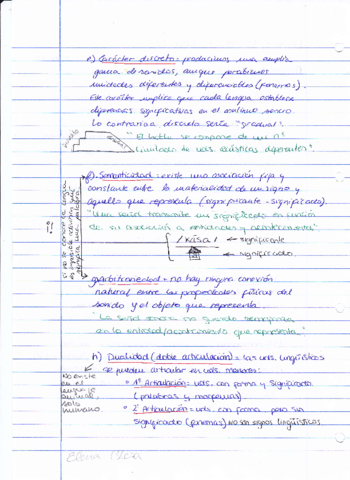 e) Carácter discreto: producimos una amplia
gama de sonidos, aunque percibimos
unidades diferentes y diferenciables (fonemas).
Ese carácter implica que cada lengua establece
diferencias significativas en el continuo sonoro
Lo contrario a discreto sería "gradual".
"El habla se compone de un nº
limitado de uds. acústicas diferentes".
discreto
gradual
f) Semanticidad: existe una asociación fija y
constante entre la materialidad de un signo y
aquello que representa (significante - significado).
"Una señal transmite un significado en función
de su asociación a entidades y acontecimientos"
/kása/ ← significante
← significado.
si no se conoce la lengua
!!
g) arbitrariedad = no hay ninguna conexión
natural entre las propiedades físicas del
sonido y el objeto que representa.
"La señal no guarda semejanza
con la entidad/acontecimiento que representa."
h) Dualidad (doble articulación) = las uds. lingüísticas
se pueden articular en uds. menores:
No existe
en el
lenguaje
animal,
solo
humano.
• 1ª Articulación = uds. con forma y significado
(palabras y morfemas).
• 2ª Articulación = uds. con forma pero sin
significado (fonemas) NO son signos lingüísticos.